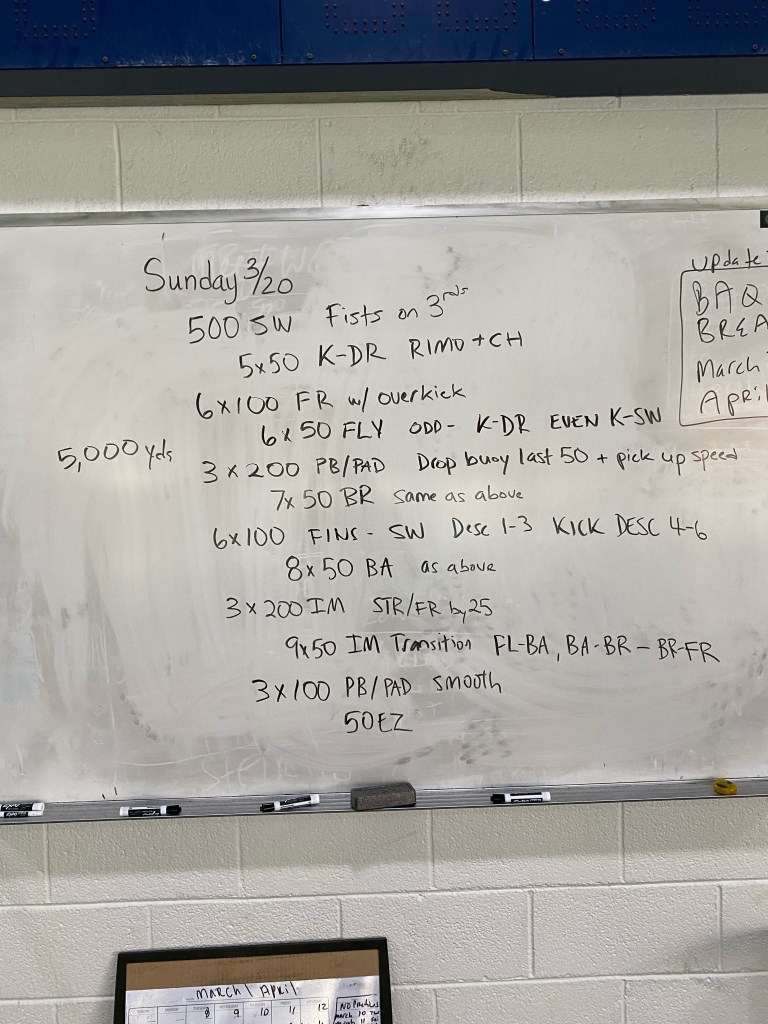 Sunday 3/20
500 SW Fists on 3rds
5x50 K-DR RIMO + CH
6x100 FR w/ overkick
6x50 FLY ODD- K-DR EVEN K-SW
5,000 yds
3x200 PB/PAD Drop buoy last 50 + pick up speed
7x50 BR same as above
6x100 FINS - SW Desc 1-3 KICK DESC 4-6
8x50 BA as above
3x200 IM STR/FR by 25
9x50 IM Transition FL-BA, BA-BR - BR-FR
3x100 PB/PAD smooth
50 EZ
update
BAQ
BREA
March
April
March / April
8 9 10 11 12
NO
March 10